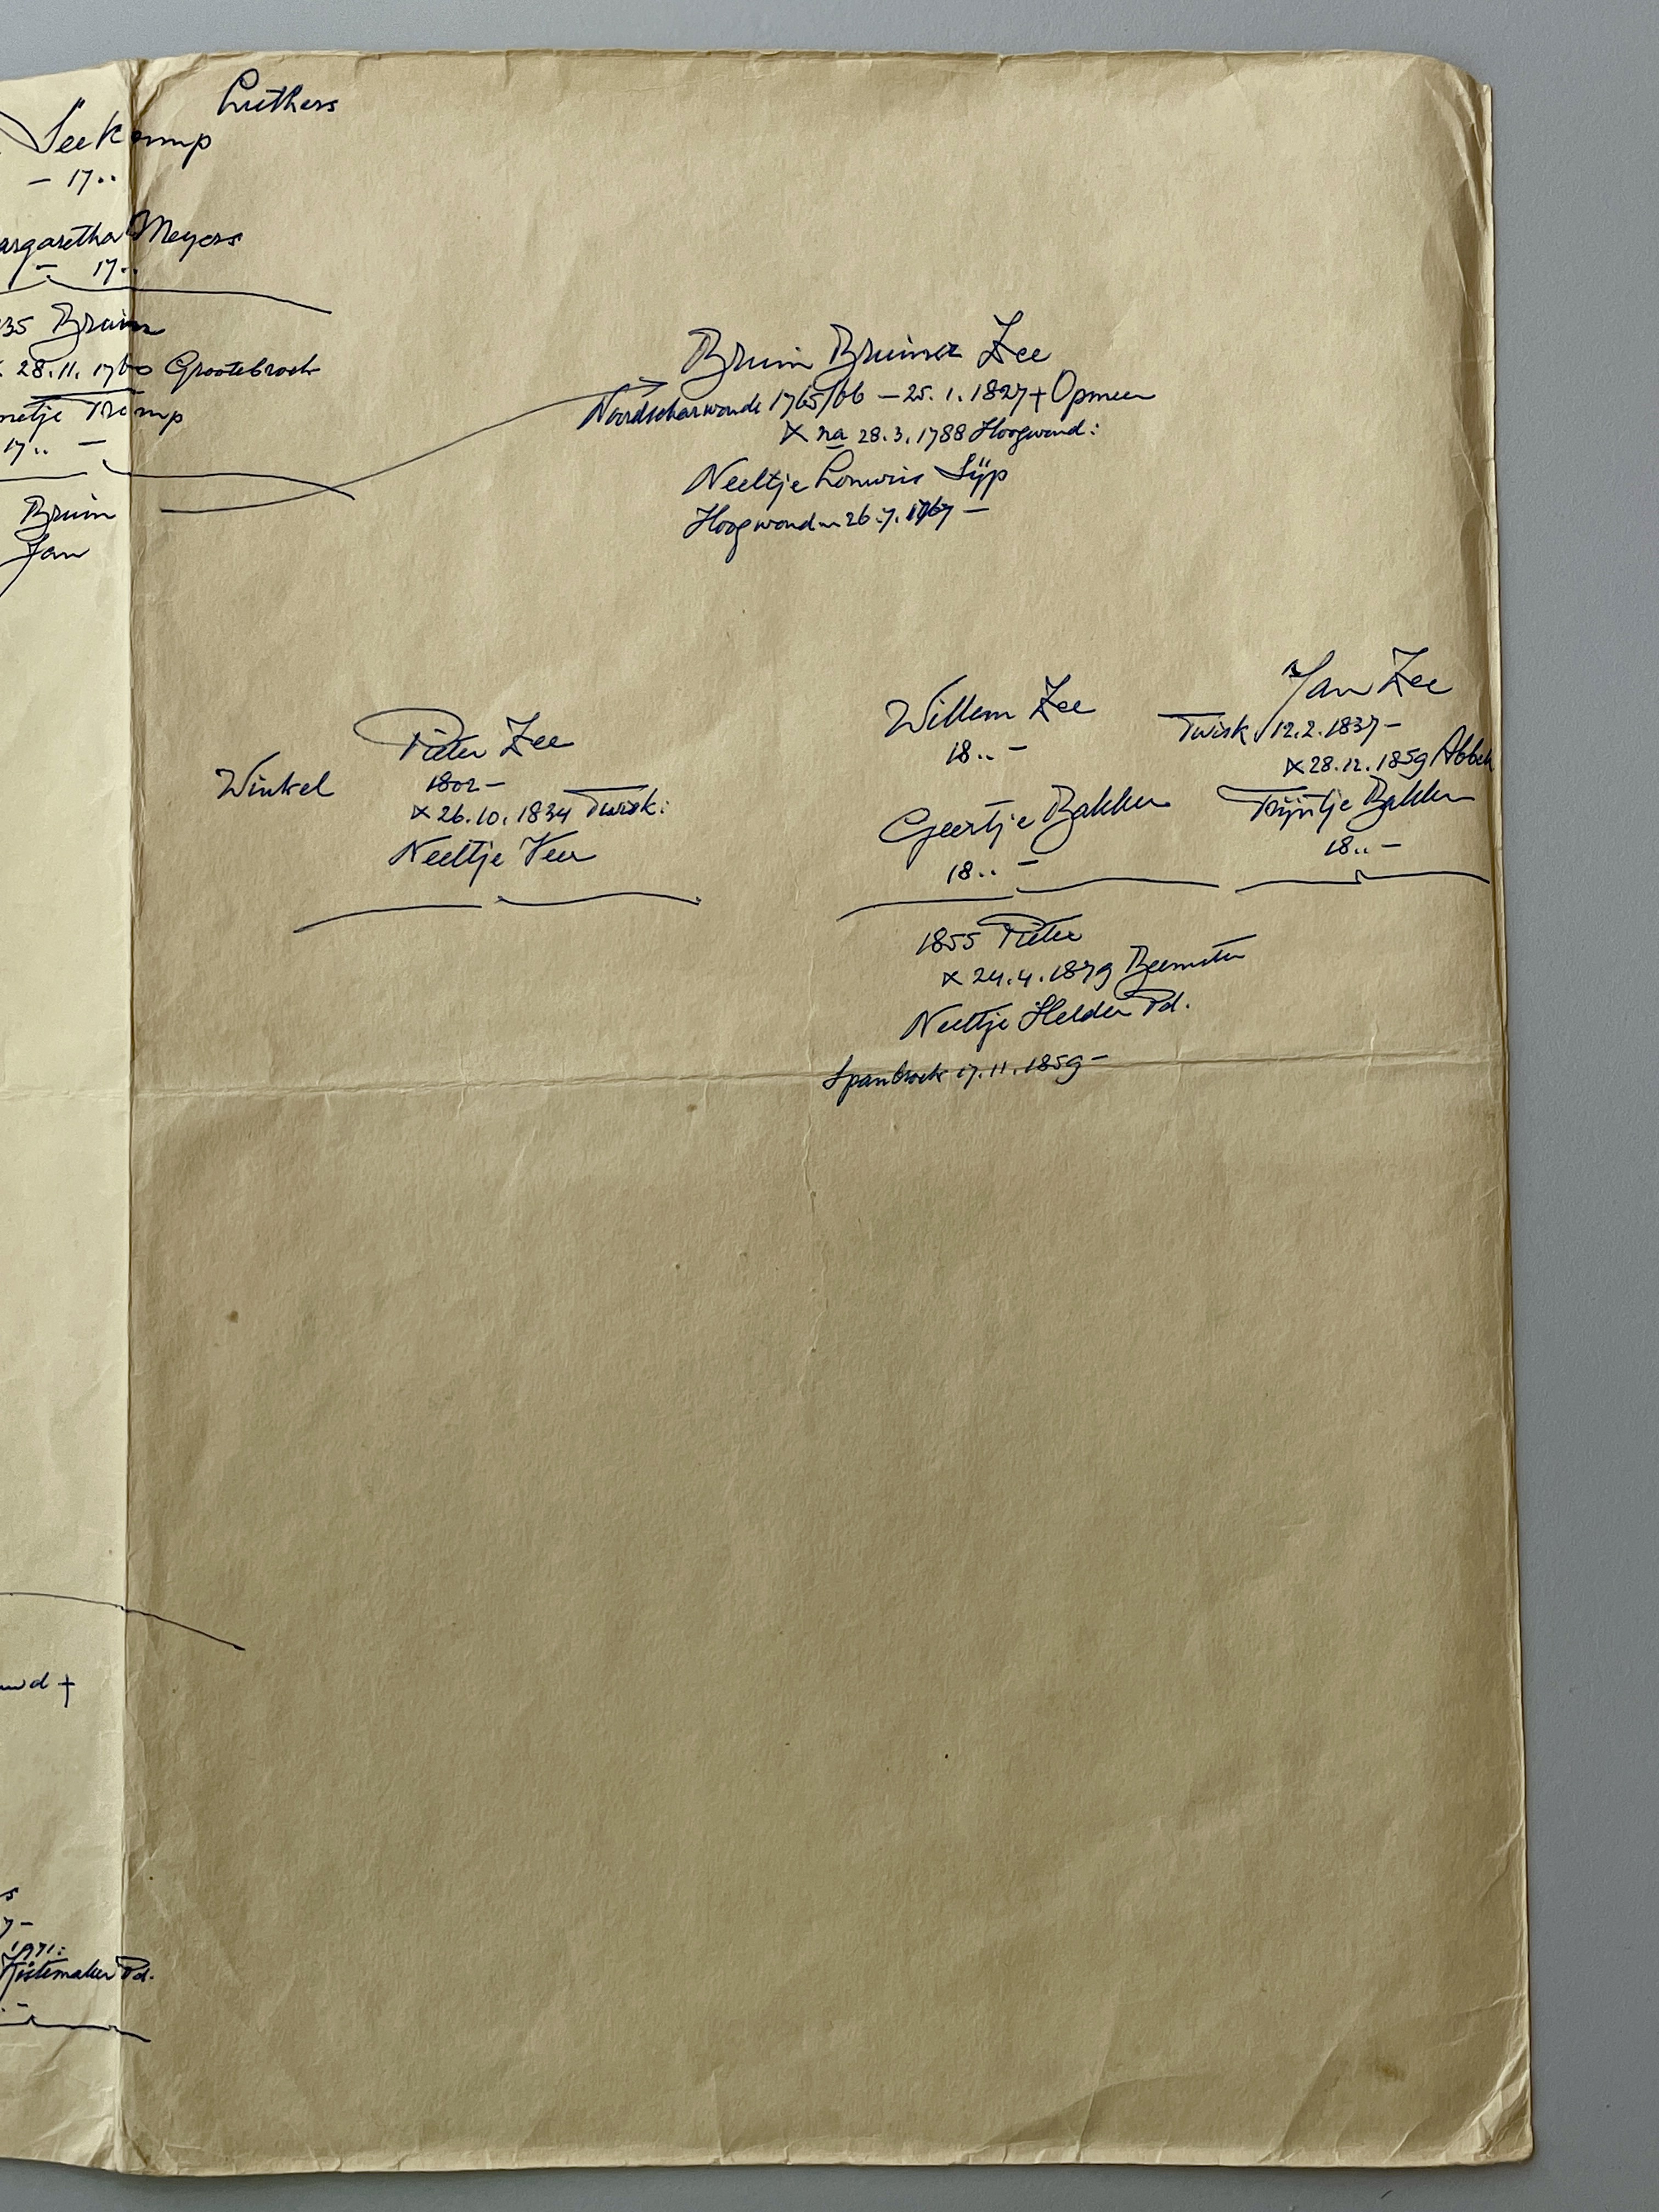 Luthers
Seekamp
- 17..
argaretha Meyers
- 17..
35 Bruin
28.11.1760 Grootebroek
netje Tromp
17.. -
Bruin
Jan
Bruin Bruinsz Zee
Noordscharwoude 1765/66 - 25.1.1827 + Opmeer
x na 28.3.1788 Hoogwoud:
Neeltje Louwris Sijp
Hoogwoud ~ 26.7.1767 -
Pieter Zee
Winkel 1802 -
x 26.10.1834 Twisk:
Neeltje Veer
Willem Zee
18.. -
Geertje Bakker
18.. -
Jan Zee
Twisk 12.2.1837 -
x 28.12.1859 Abbek
Trijntje Bakker
18.. -
1855 Pieter
x 24.4.1879 Beemster
Neeltje Helder Pd.
Spanbroek 17.11.1859 -
wd +
s
7 -
1971:
Kistemaker Pd.
.. -